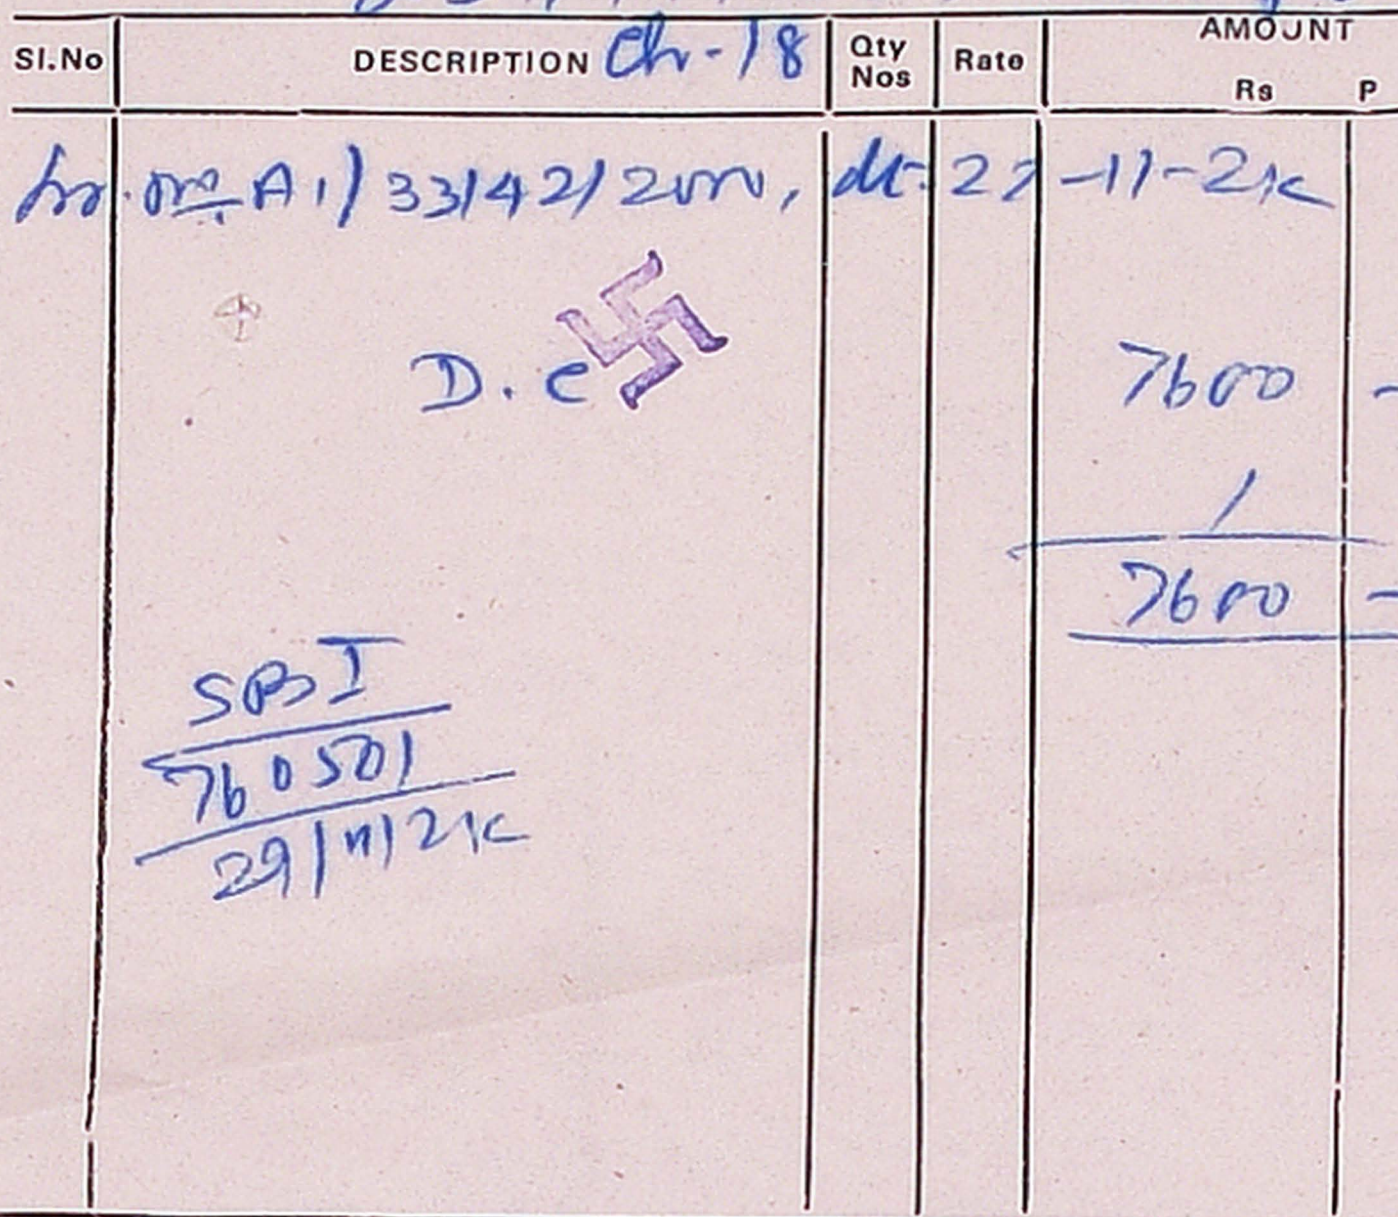 Sl.No DESCRIPTION Ch-18 Qty Nos Rate AMOUNT Rs P
no A1/33142/2000, dt. 22-11-2k
D.C 7600 -
7600 -
SBI
760501
29/11/2k